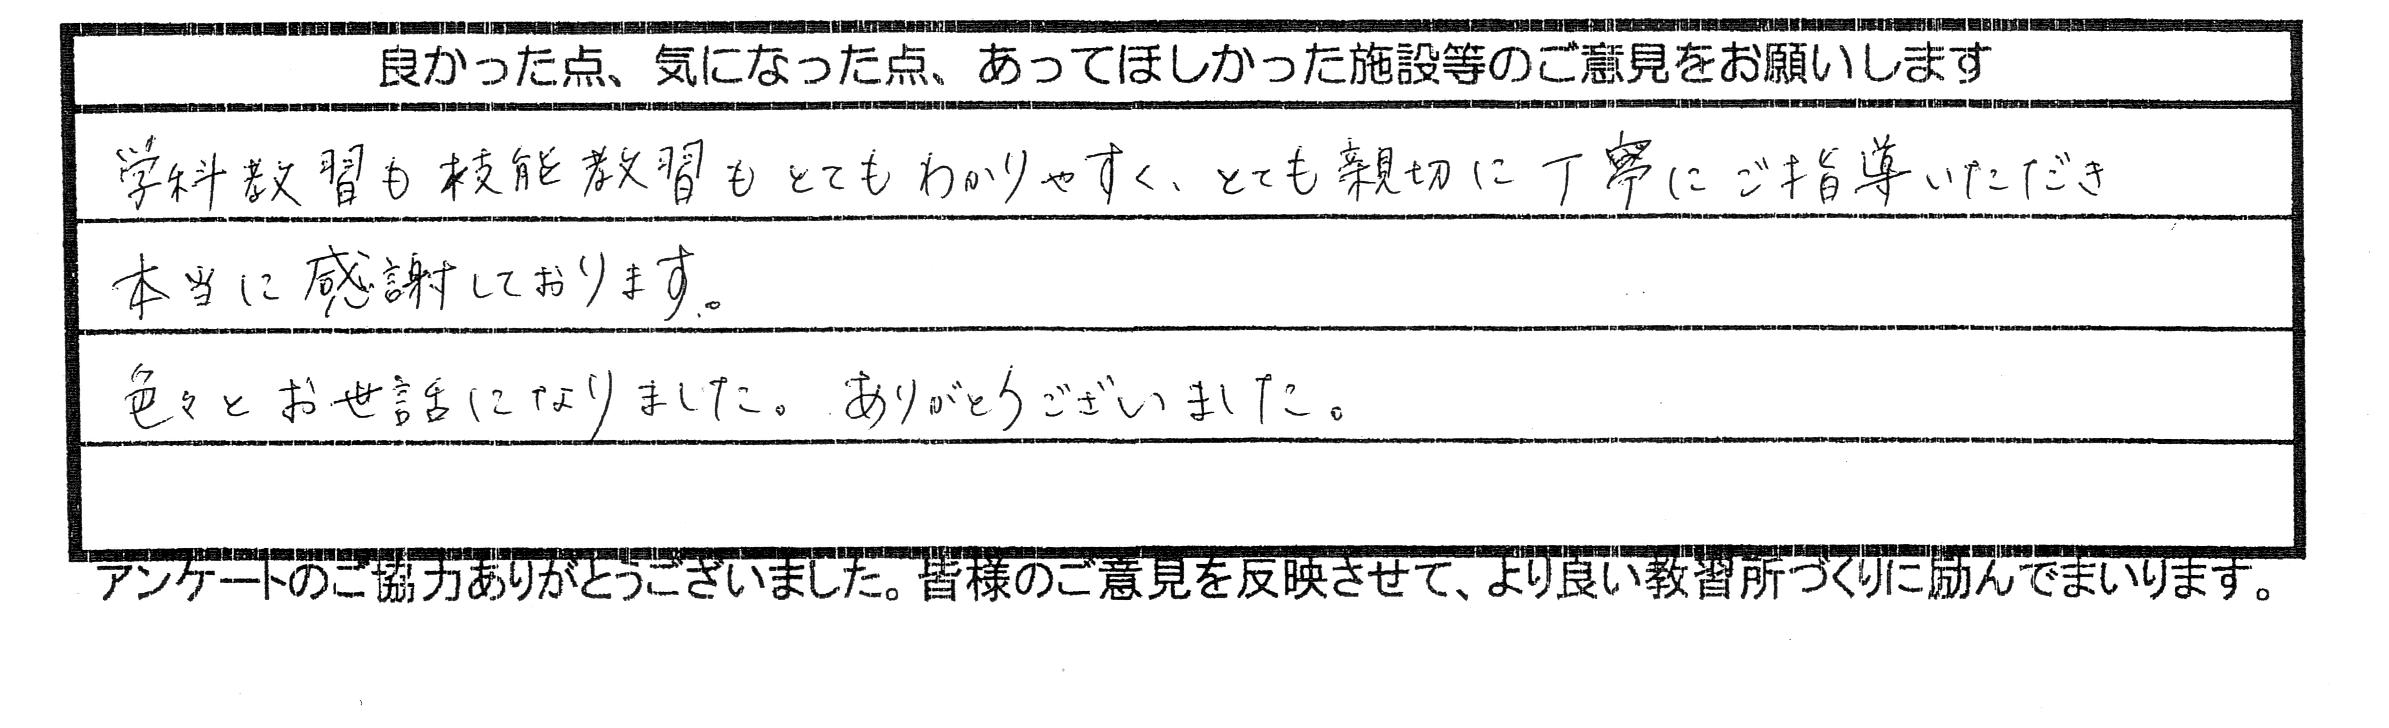 良かった点、気になった点、あってほしかった施設等のご意見をお願いします
学科教習も技能教習もとてもわかりやすく、とても親切に丁寧にご指導いただき
本当に感謝しております。
色々とお世話になりました。ありがとうございました。
アンケートのご協力ありがとうございました。皆様のご意見を反映させて、より良い教習所づくりに励んでまいります。